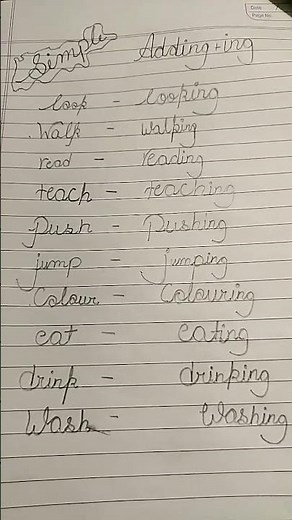 Date
Page No.
Simple Adding+ing
look - looking
walk - walking
read - reading
teach - teaching
Push - Pushing
jump - jumping
Colour - Colouring
eat - eating
drink - drinking
Wash - Washing